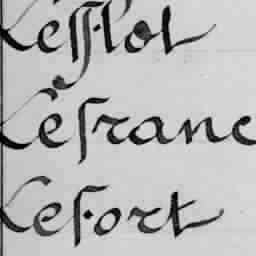 Lefflot
Lefranc
Lefort